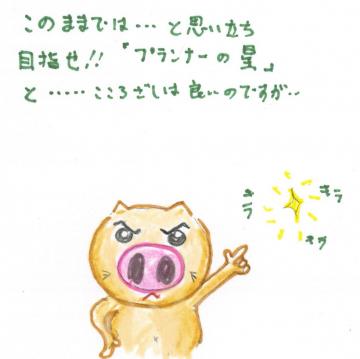 このままでは… と思い立ち
目指せ!!「プランナーの星」
と …… こころざしは良いのですが‥
キラ
キラ
キラ